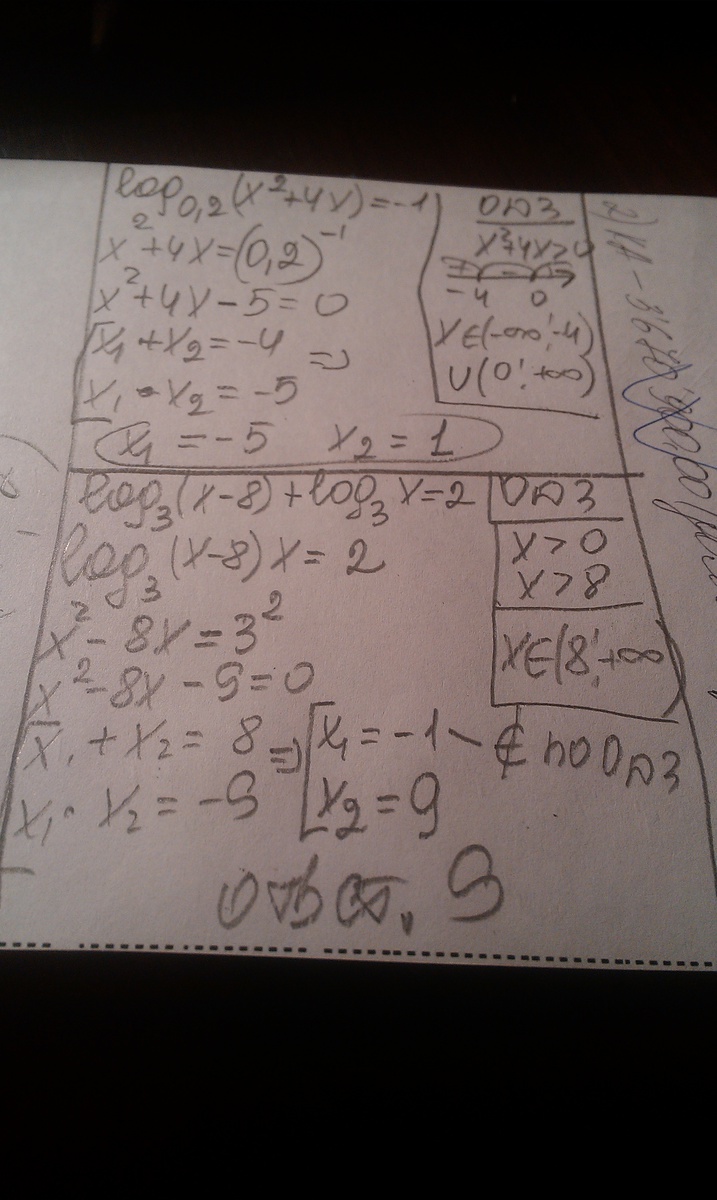 log₀,₂(x²+4x)=-1
x²+4x=(0,2)⁻¹
x²+4x-5=0
x₁+x₂=-4 ⇒
x₁·x₂=-5
x₁=-5 x₂=1
ОДЗ
x²+4x>0
+ - +
-4 0
x∈(-∞;-4)
∪(0;+∞)
log₃(x-8)+log₃x=2
log₃(x-8)x=2
x²-8x=3²
x²-8x-9=0
x₁+x₂=8 ⇒ [x₁=-1 - ∉ по ОДЗ
x₁·x₂=-9 [x₂=9
ОДЗ
x>0
x>8
x∈(8;+∞)
ответ. 9
2)